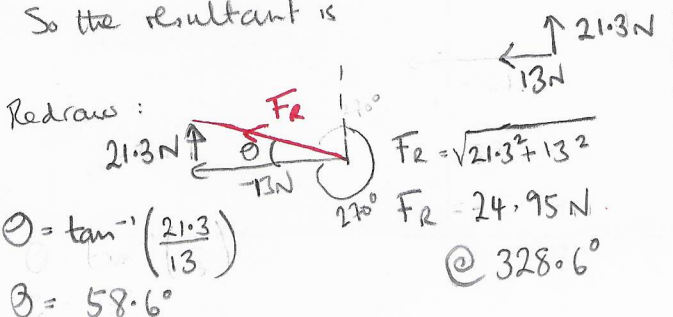 So the resultant is
21.3N
13N
Redraw :
FR
21.3N
θ
13N
270°
FR = √21.3² + 13²
FR = 24.95 N.
@ 328.6°
θ = tan⁻¹ (21.3/13)
θ = 58.6°